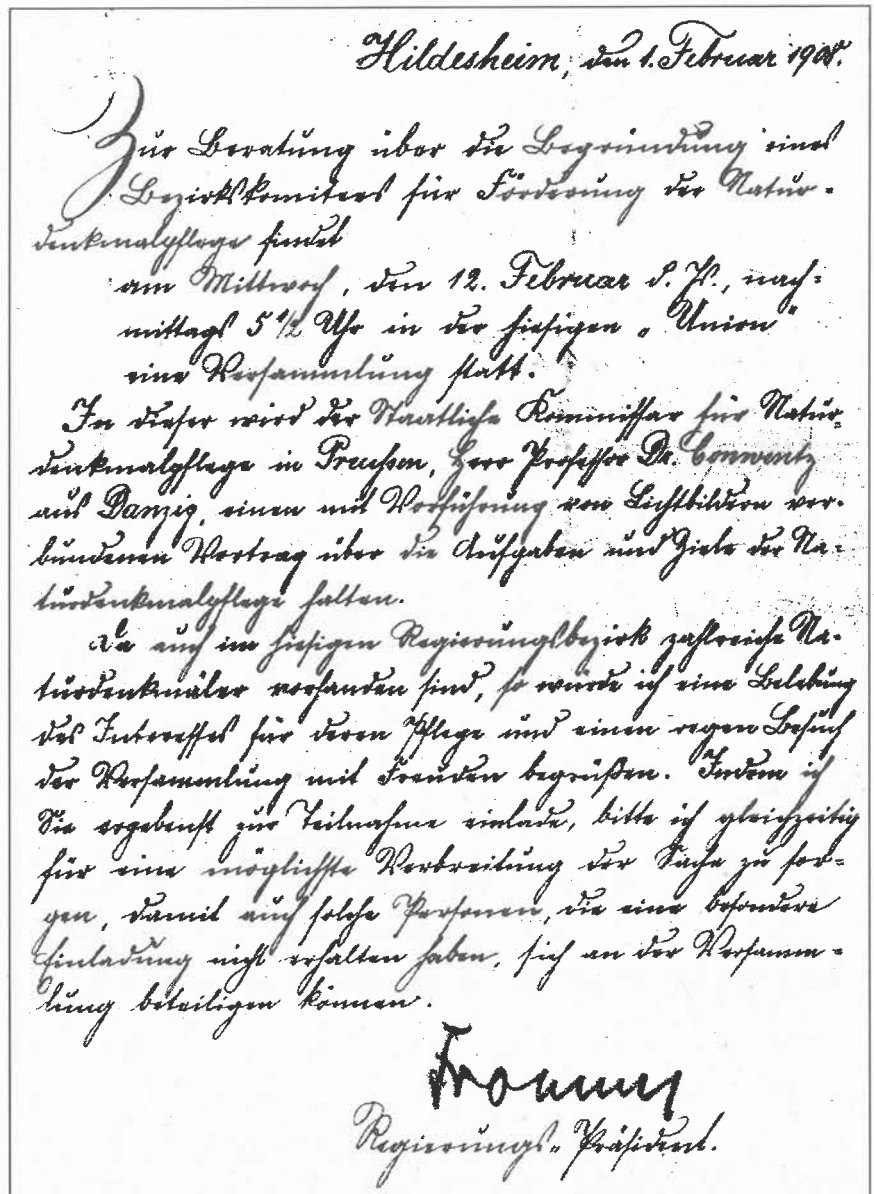 Hildesheim, den 1. Februar 1908.
Zur Beratung über die Begründung eines
Bezirkskomitees für Förderung der Natur-
denkmalpflege findet
am Mittwoch, den 12. Februar d. Js., nach-
mittags 5 1/2 Uhr in der hiesigen „Union"
eine Versammlung statt.
In dieser wird der Staatliche Kommissar für Natur-
denkmalpflege in Preussen, Herr Professor Dr. Conwentz
aus Danzig, einen mit Vorführung von Lichtbildern ver-
bundenen Vortrag über die Aufgaben und Ziele der Na-
turdenkmalpflege halten.
Da auch im hiesigen Regierungsbezirk zahlreiche Na-
turdenkmäler vorhanden sind, so würde ich eine Belebung
des Interesses für deren Pflege und einen regen Besuch
der Versammlung mit Freuden begrüßen. Indem ich
Sie ergebenst zur Teilnahme einlade, bitte ich gleichzeitig
für eine möglichste Verbreitung der Sache zu sor-
gen, damit auch solche Personen, die eine besondere
Einladung nicht erhalten haben, sich an der Versamm-
lung beteiligen können.
Fromme
Regierungs-Präsident.